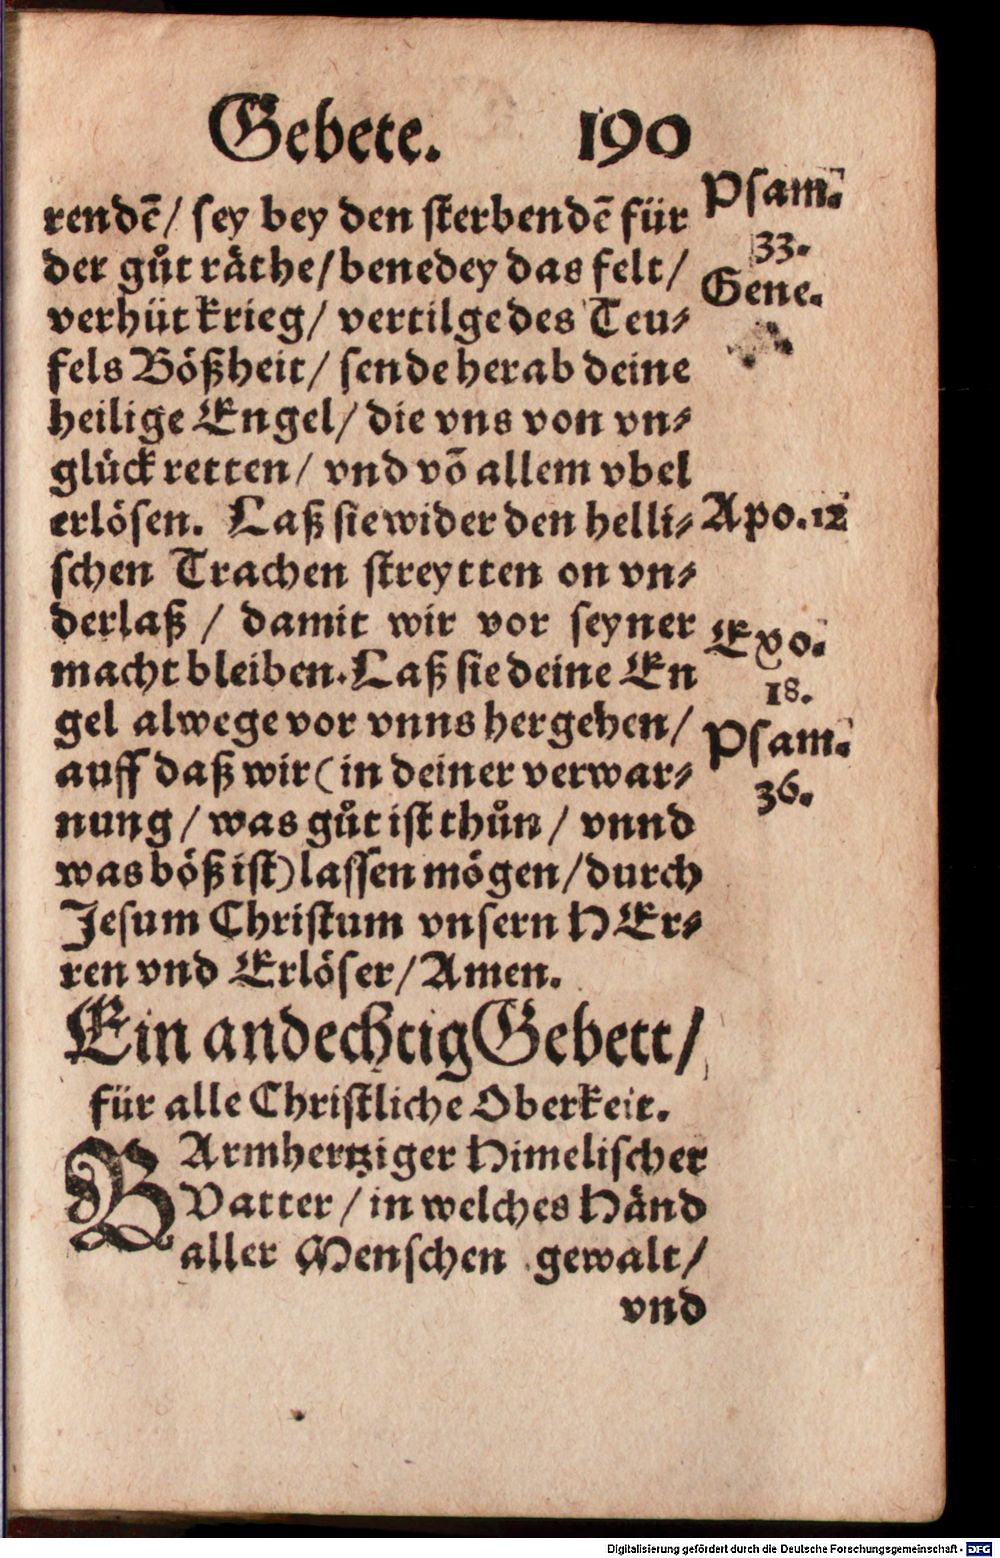 Gebete. 190
rendē/ sey bey den sterbendē für
der gůt räthe/ benedey das felt/
verhüt krieg/ vertilge des Teu⸗
fels Bößheit/ sende herab deine
heilige Engel/ die vns von vn⸗
glück retten/ vnd vō allem vbel
erlösen. Laß sie wider den helli⸗
schen Trachen streytten on vn⸗
derlaß / damit wir vor seyner
macht bleiben. Laß sie deine En
gel alwege vor vnns hergehen/
auff daß wir (in deiner verwar⸗
nung/ was gůt ist thůn/ vnnd
was böß ist) lassen mögen/ durch
Jesum Christum vnsern HEr⸗
ren vnd Erlöser/ Amen.
Ein andechtig Gebett/
für alle Christliche Oberkeit.
BArmhertziger Himelischer
Vatter/ in welches Händ
aller Menschen gewalt/
vnd
Psam̄.
33.
Gene.
Apo. 12
Exo.
18.
Psam̄.
36.
Digitalisierung gefördert durch die Deutsche Forschungsgemeinschaft - DFG